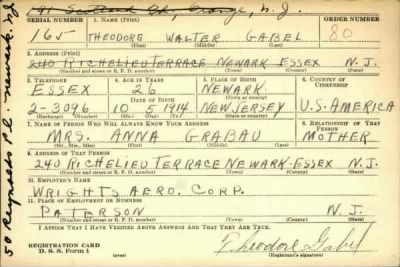 Orange, N.J.
SERIAL NUMBER 1. NAME (Print) ORDER NUMBER
165 THEODORE WALTER GABEL 80
(First) (Middle) (Last)
2. ADDRESS (Print)
240 RICHELIEU TERRACE NEWARK ESSEX N.J.
(Number and street or R. F. D. number) (Town) (County) (State)
3. TELEPHONE 4. AGE IN YEARS 5. PLACE OF BIRTH 6. COUNTRY OF CITIZENSHIP
ESSEX 26 NEWARK
(Town or county)
DATE OF BIRTH
2-3096 10 5 1914 NEW JERSEY U.S. AMERICA
(Exchange) (Number) (Mo.) (Day) (Yr.) (State or country)
7. NAME OF PERSON WHO WILL ALWAYS KNOW YOUR ADDRESS 8. RELATIONSHIP OF THAT PERSON
MRS. ANNA GRABAU MOTHER
(Mr., Mrs., Miss) (First) (Middle) (Last)
9. ADDRESS OF THAT PERSON
240 RICHELIEU TERRACE NEWARK-ESSEX N.J.
(Number and street or R. F. D. number) (Town) (County) (State)
10. EMPLOYER'S NAME
WRIGHTS AERO. CORP.
11. PLACE OF EMPLOYMENT OR BUSINESS
PATERSON N.J.
(Number and street or R. F. D. number) (Town) (County) (State)
I AFFIRM THAT I HAVE VERIFIED ABOVE ANSWERS AND THAT THEY ARE TRUE.
REGISTRATION CARD
D. S. S. Form 1
Theodore Gabel
(Registrant's signature)
50 Reynolds Pl. Newark, NJ